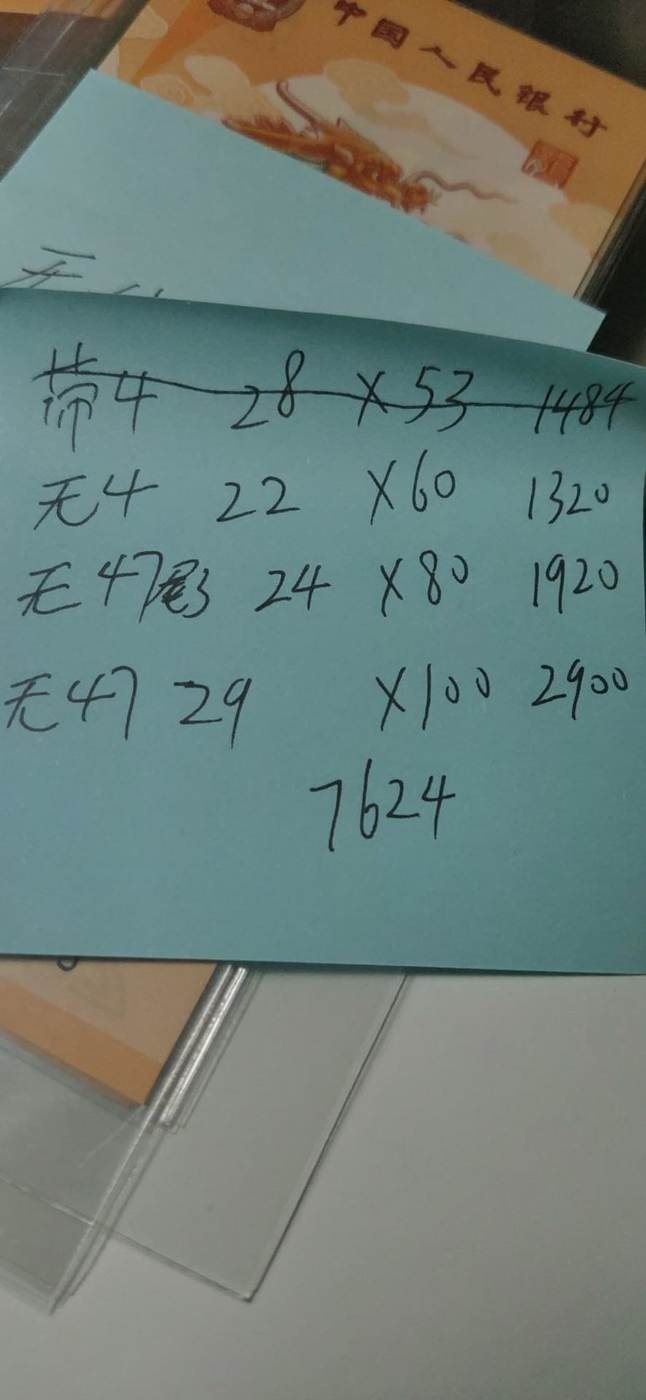 中国人民银行
无
带4 28 ×53 1484
无4 22 ×60 1320
无47尾3 24 ×80 1920
无47 29 ×100 2900
7624